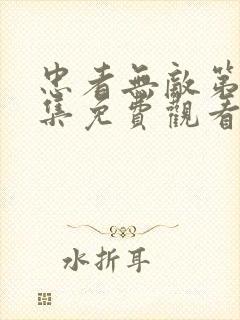 忠者無敵第
集免費觀看
水折耳